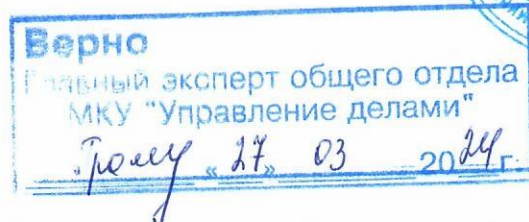 Верно
Главный эксперт общего отдела
МКУ "Управление делами"
"27" 03 2024 г.